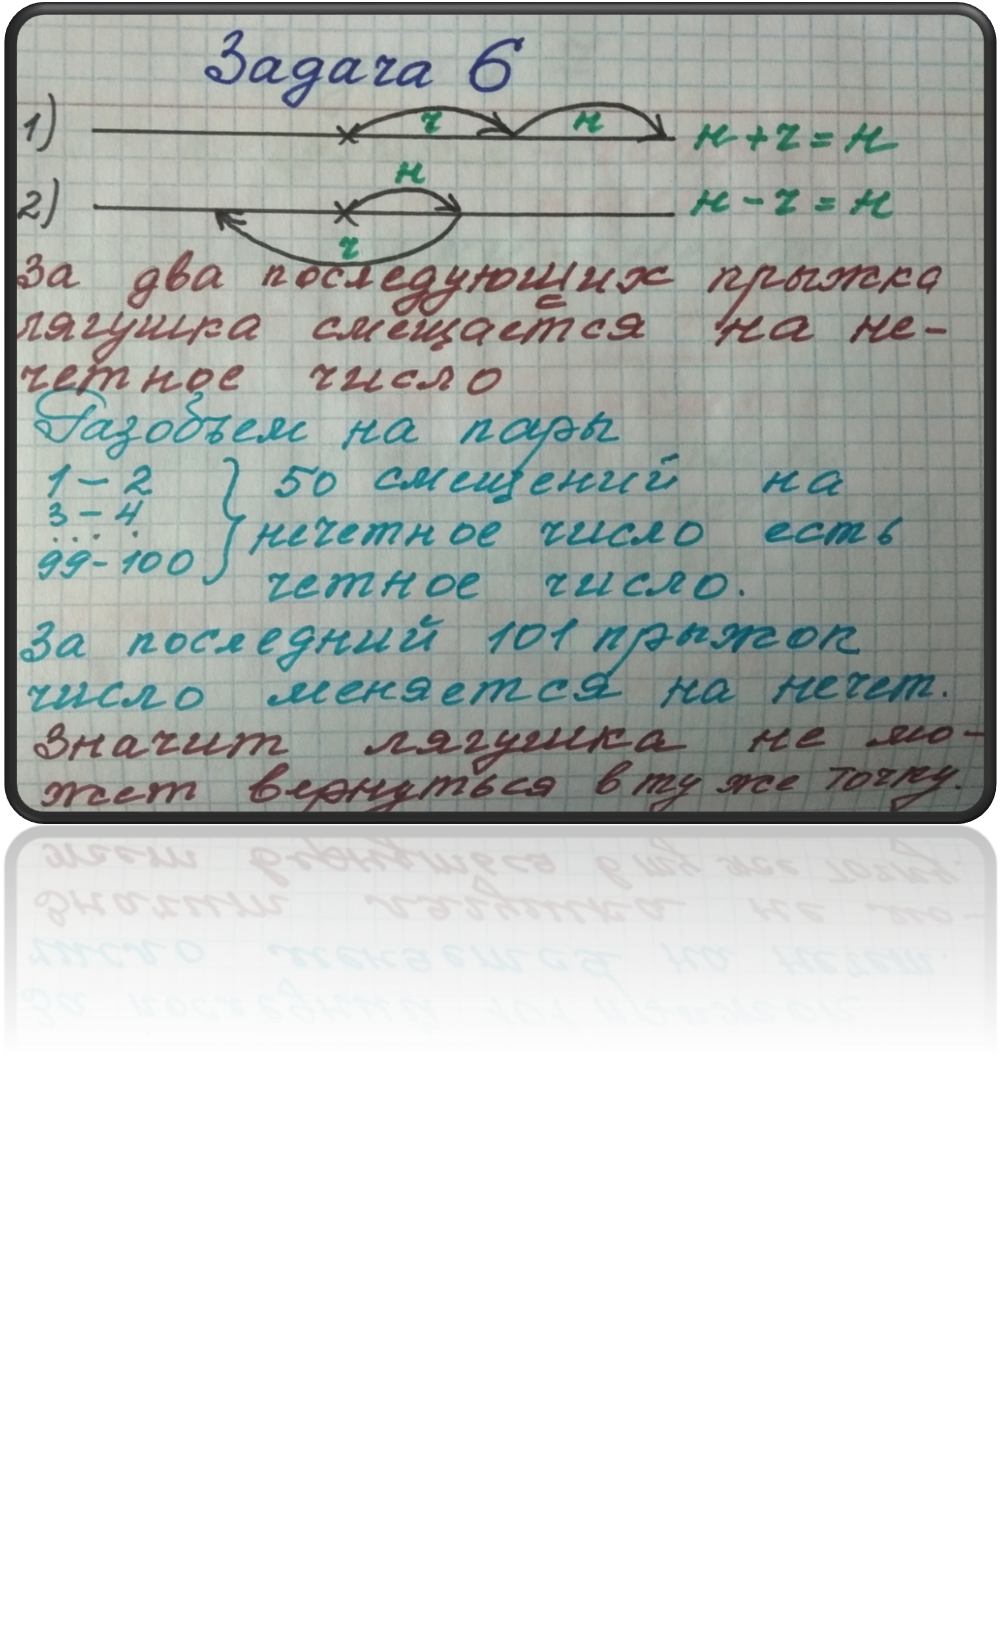 Задача 6
1) ч н н + ч = н
2) н ч н - ч = н
За два последующих прыжка
лягушка смещается на не-
четное число
Разобъем на пары
1 - 2 50 смещений на
3 - 4
. . . . нечетное число есть
99-100 четное число.
За последний 101 прыжок
число меняется на нечет.
Значит лягушка не мо-
жет вернуться в ту же точку.